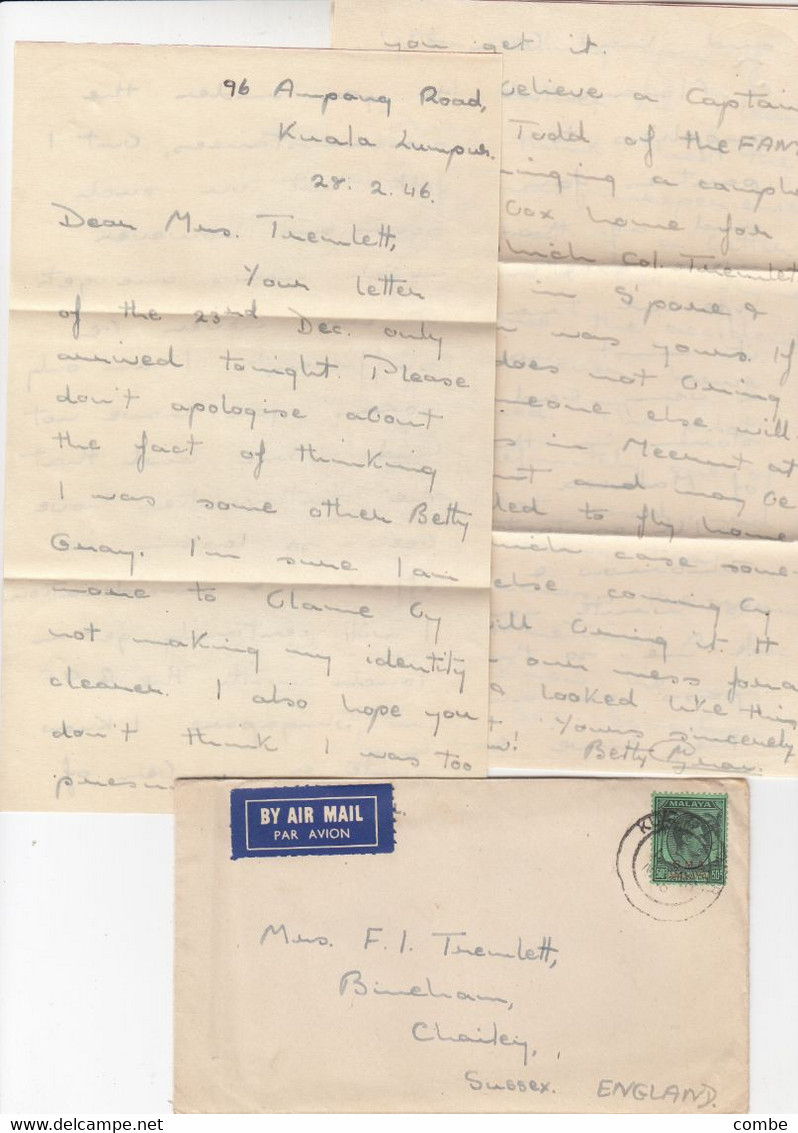 96 Ampang Road,
Kuala Lumpur.
28. 2. 46.
Dear Mrs. Tremlett,
Your letter
of the 23rd Dec. only
arrived tonight. Please
don't apologise about
the fact of thinking
I was some other Betty
Gray. I'm sure I am
more to blame by
not making my identity
clearer. I also hope you
don't think I was too
you get it.
believe a Captain
Todd of the FANY
a camphor
box home for
which Col. Tremlett
in S'pore &
was yours. If
does not bring
someone else will.
in Meerut at
and may be
to fly home
which case some
else coming by
will bring it. It
our mess for a
& looked like this
Yours sincerely
Betty Gray.
BY AIR MAIL
PAR AVION
MALAYA
50c 50c
Mrs. F. I. Tremlett,
Bineham,
Chailey,
Sussex. ENGLAND.
delcampe.net
combe